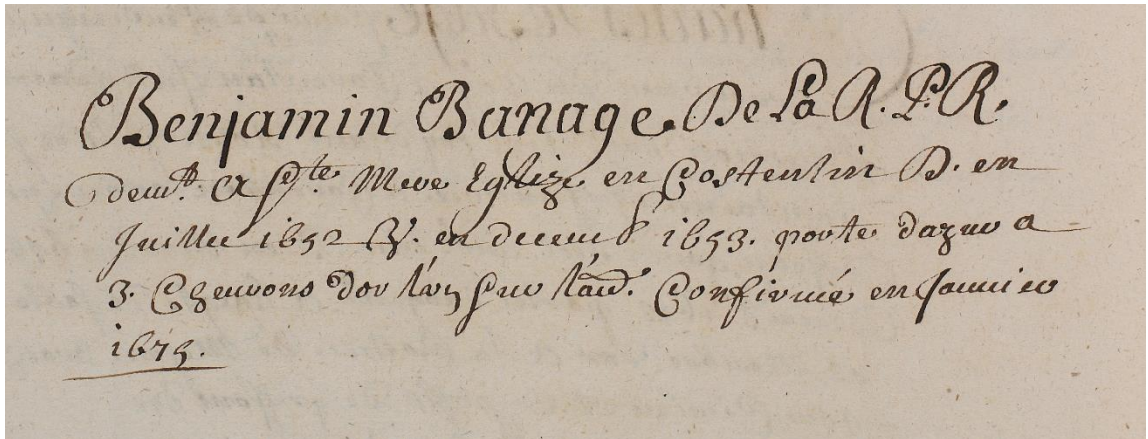 Benjamin Banage. De La R. P. R.
demt. a Ste. Mere Eglize en Costentin D. en
Juillet 1652 V. en decemb 1653. porte dazur a
3. Cheurons dor l'un sur l'aud. Confirmé en Januier
1675.